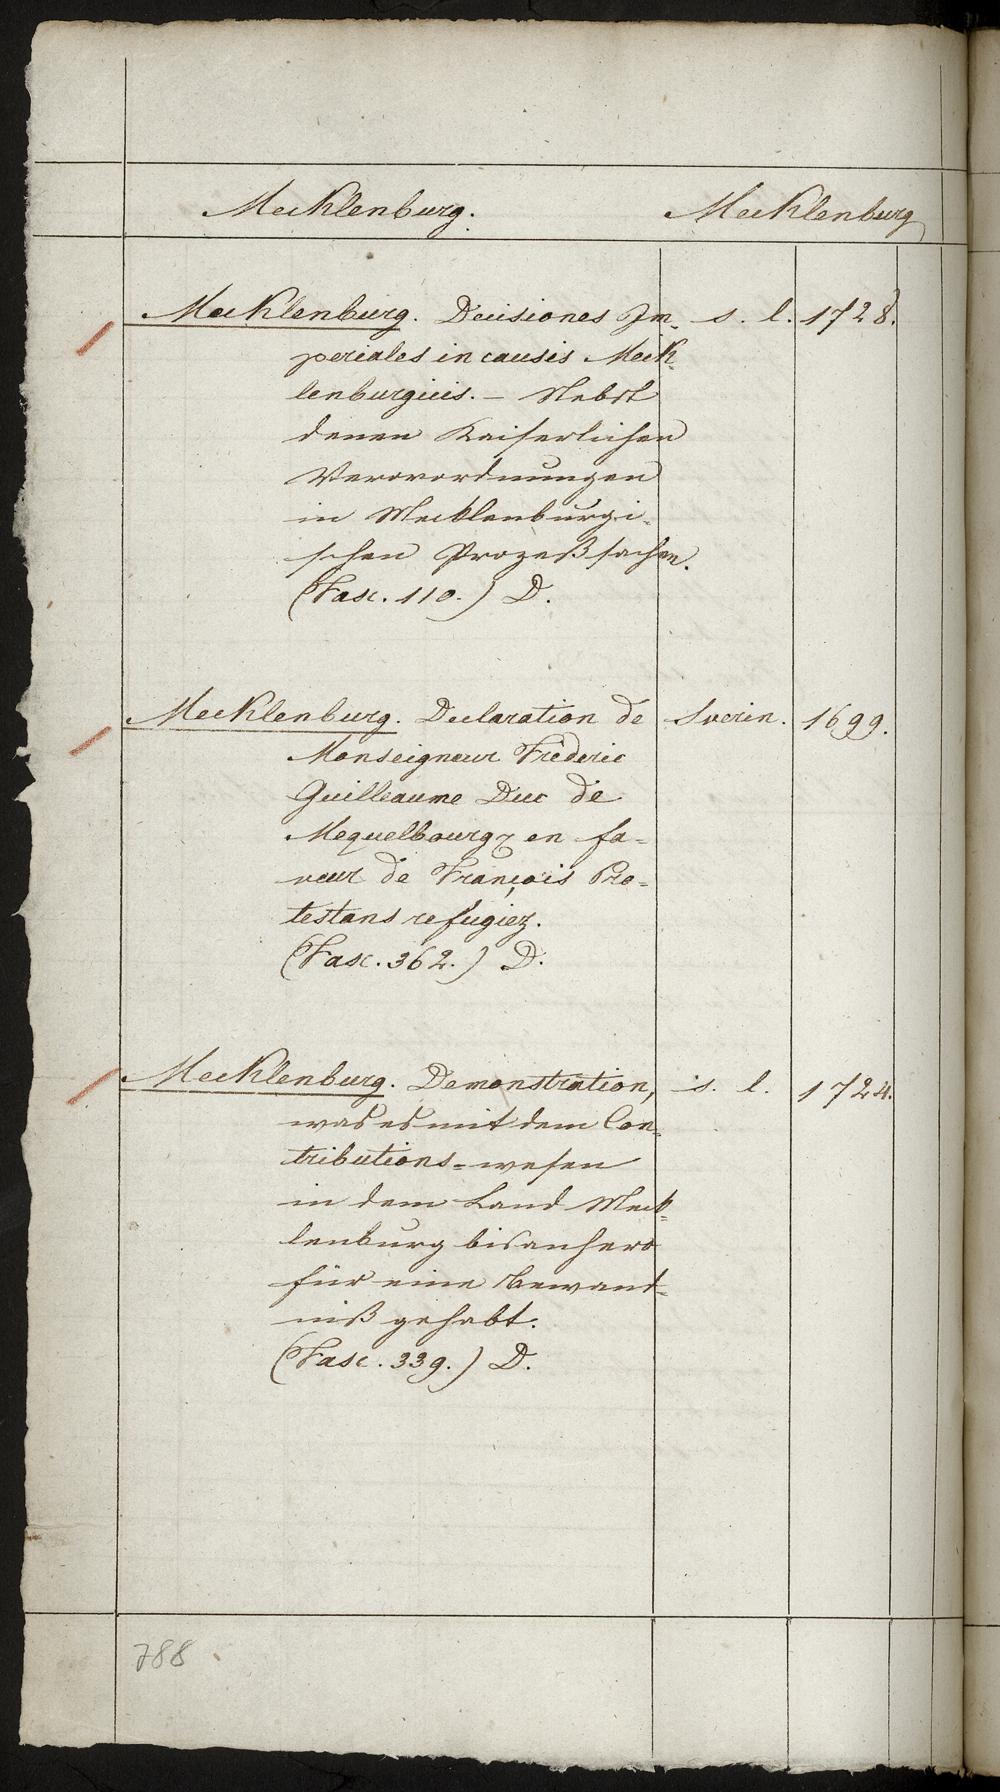 Mecklenburg. Mecklenburg
Mecklenburg. Decisiones Im- s. l. 1728.
periales in causis Meck-
lenburgicis. – Nebst
denen Kaiserlichen
Verorordnungen
in Mecklenburgi-
schen Prozeßsachen.
(Fasc. 110.) D.
Mecklenburg. Declaration de Sverin. 1699.
Monseigneur Fréderic
Guilleaume Duc de
Mequelbourg en fa-
veur de François Pro-
testans refugiez.
(Fasc. 362.) D.
Mecklenburg. Demonstration, s. l. 1724.
was es mit dem Con-
tributions-wesen
in dem Land Meck-
lenburg bisanhero
für eine Bewandt-
niß gehabt.
(Fasc. 339.) D.
788